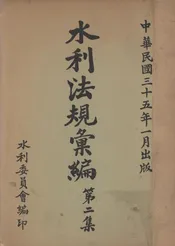 中華民國三十五年一月出版
水利法規彙編 第二集
水利委員會編印